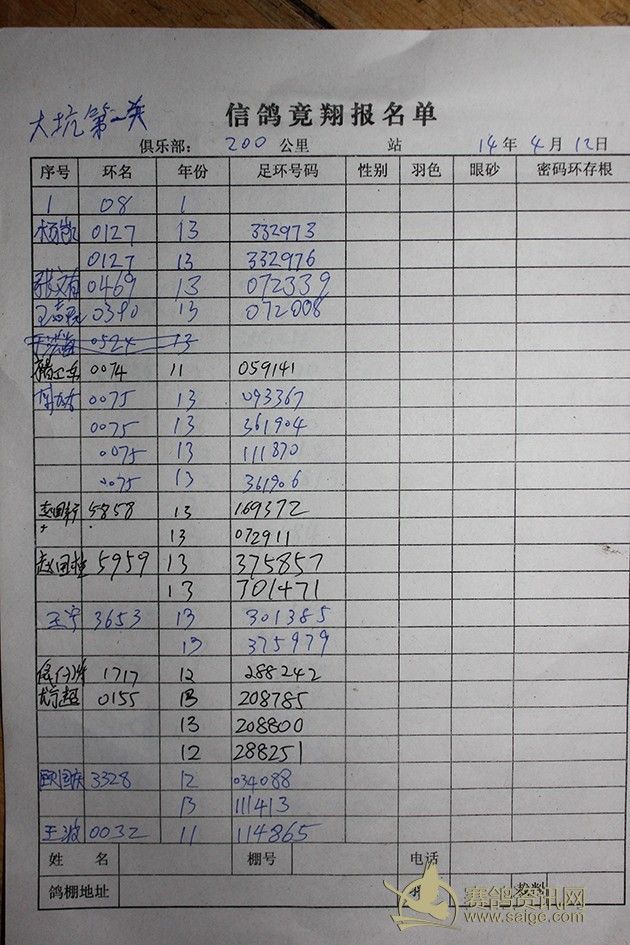 大坑第一关
信鸽竟翔报名单
俱乐部: 200 公里 站 14年 4月 12日
序号 环名 年份 足环号码 性别 羽色 眼砂 密码环存根
1 08 1
杨凯 0127 13 332973
0127 13 332976
张文有 0469 13 072339
0390 13 072008
0524 13
0074 11 059141
0075 13 093367
0075 13 361904
0075 13 111870
0075 13 361906
5858 13 169372
13 072911
赵国 5959 13 375857
13 701471
王宇 3653 13 301385
13 375979
1717 12 288242
0155 13 208785
13 208800
12 288251
欧国庆 3328 12 034088
13 111413
王波 0032 11 114865
姓 名 棚号 电话
鸽棚地址 羽数
赛鸽资讯网
www.saige.com